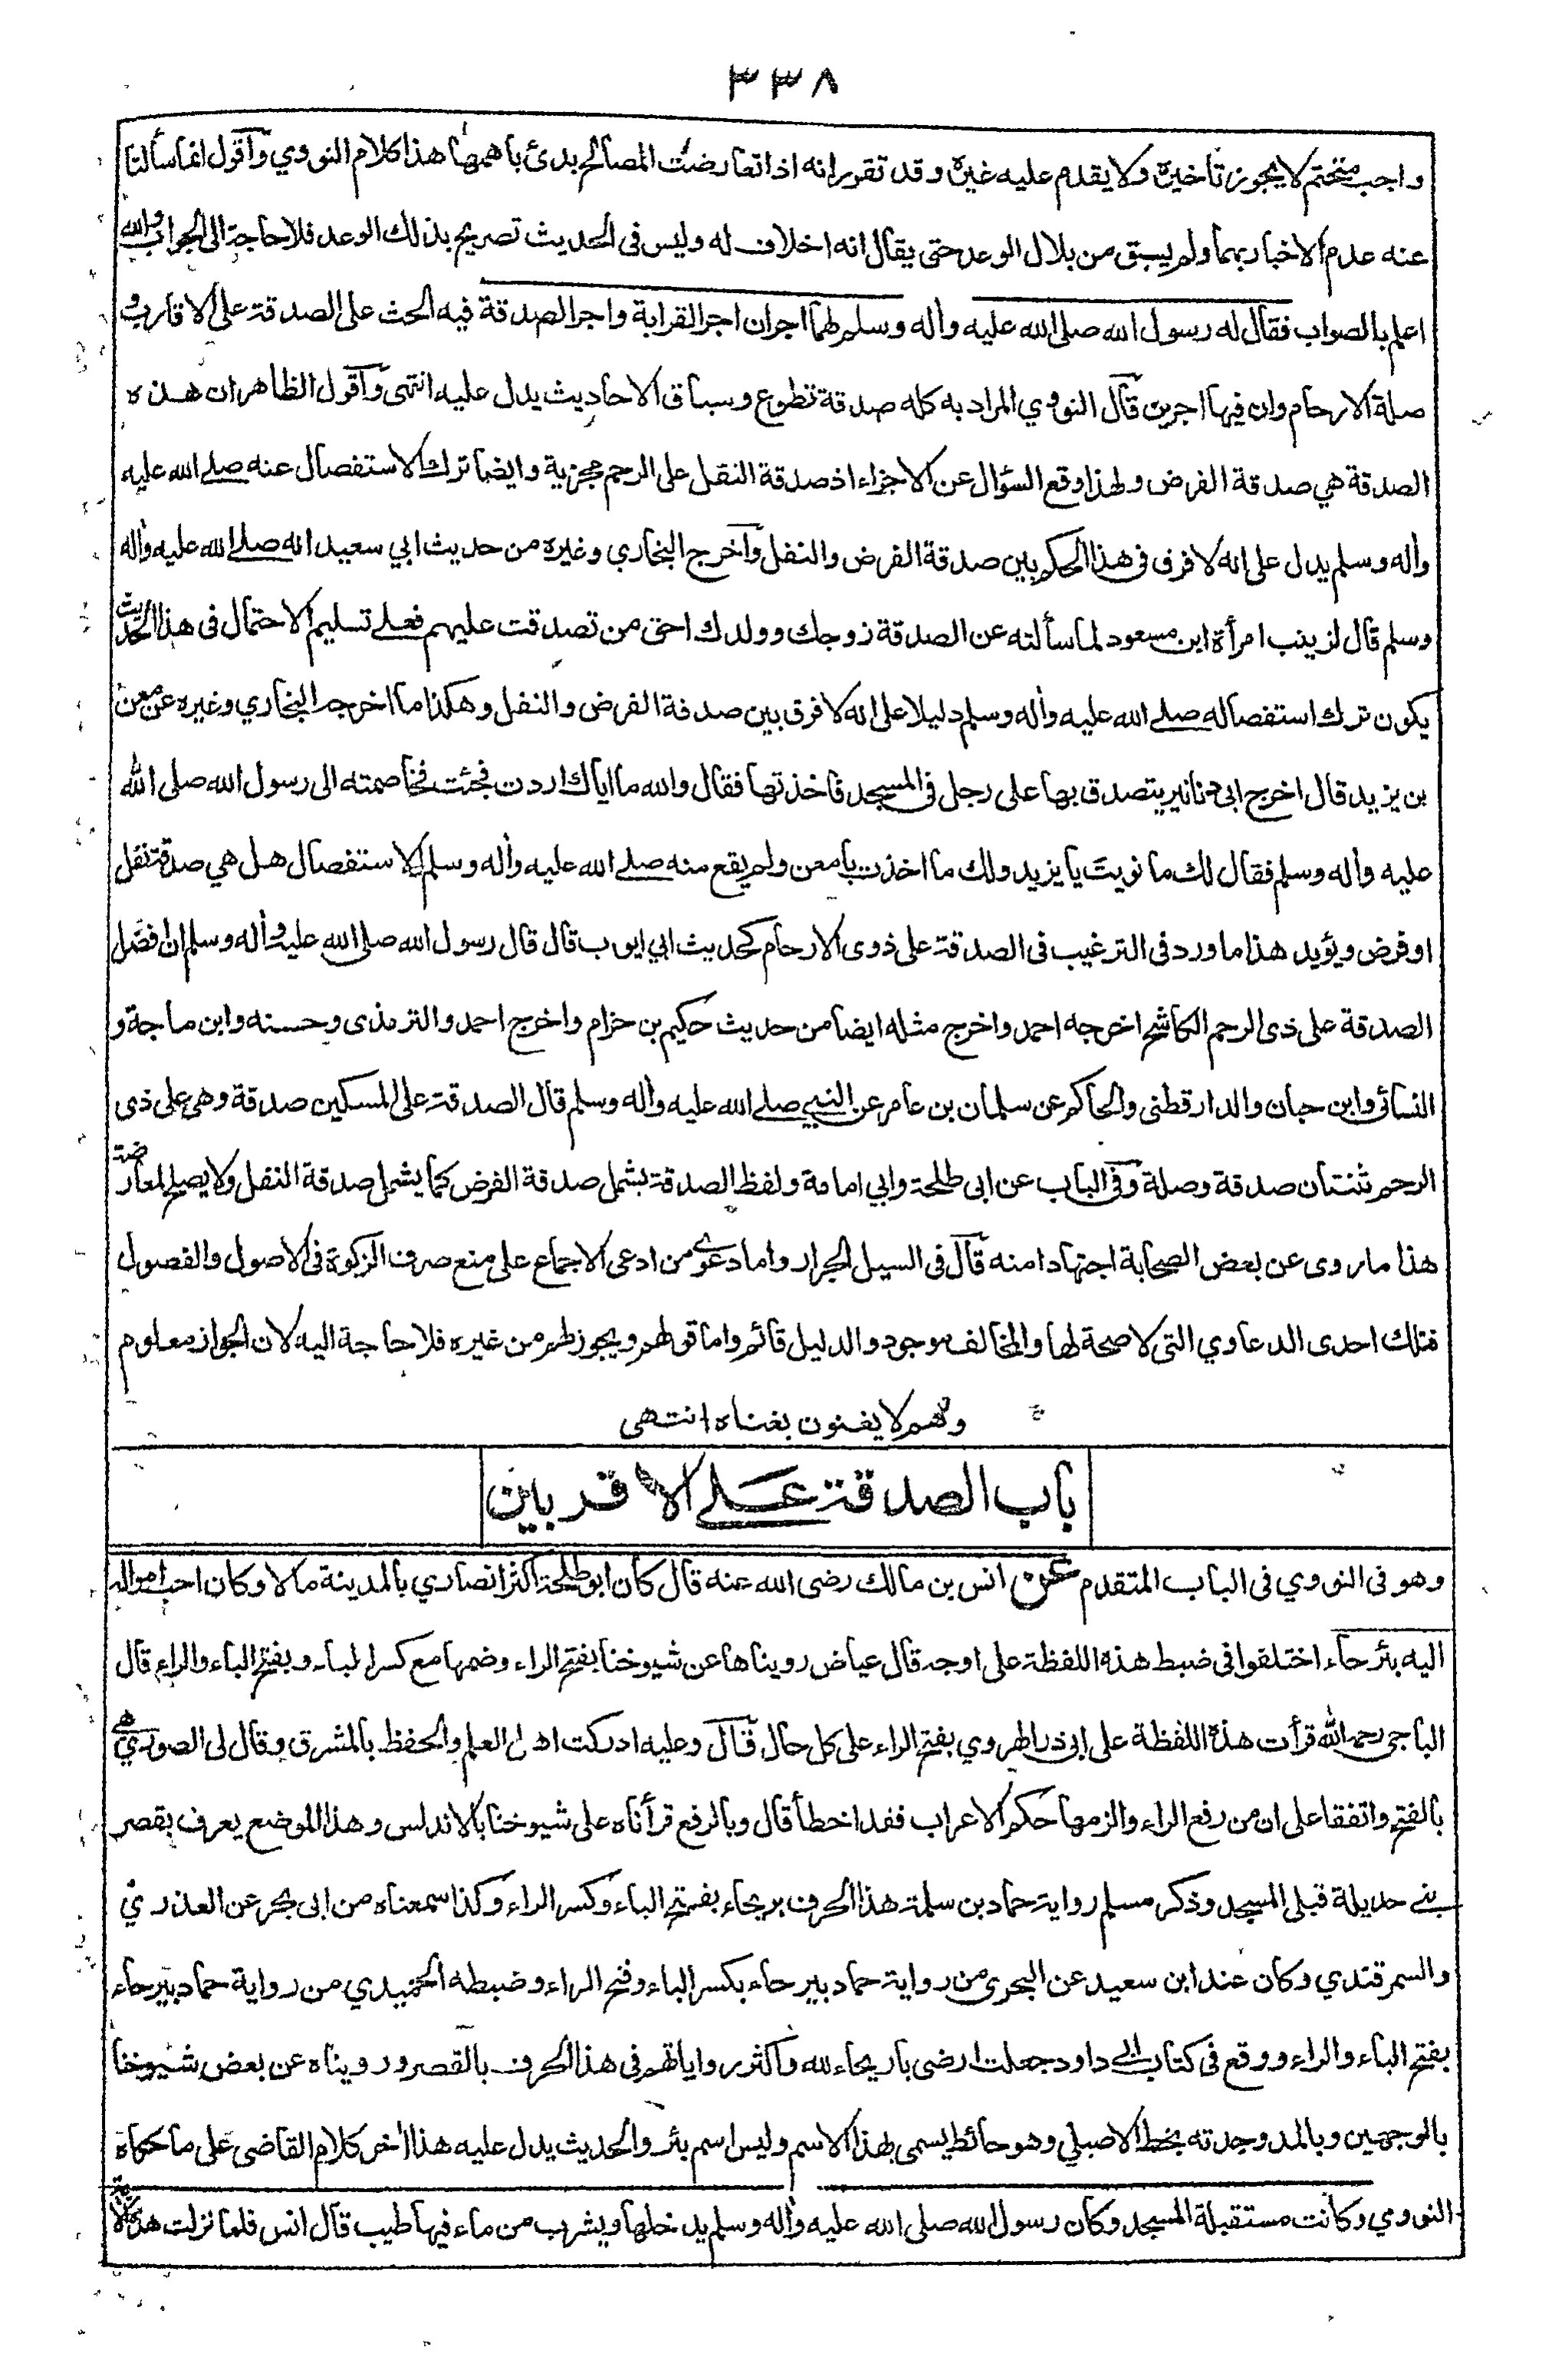 ٣٣٨
واجب متحتم لا يجوز تأخيره ولا يقدم عليه غيره وقد تقرر انه اذا تعارضت المصالح بدئ باهمها هذا كلام النووي وأقول انما سألتا
عنه عدم الاخبار بهما ولم يسبق من بلال الوعد حتى يقال انه اخلاف له وليس فى الحديث تصريح بذلك الوعد فلا حاجة الى الجواب والله
اعلم بالصواب فقال له رسول الله صلى الله عليه وأله وسلم لهما اجران اجر القرابة واجر الصدقة فيه الحث على الصدقة على الاقارب و
صلة الارحام وان فيها اجرين قال النووي المراد به كله صدقة تطوع وسياق الاحاديث يدل عليه انتهى وأقول الظاهر ان هذه
الصدقة هي صدقة الفرض ولهذا وقع السؤال عن الاجزاء اذ صدقة النفل على الرحم مجزية وايضا ترك الاستفصال عنه صلى الله عليه
وأله وسلم يدل على انه لا فرق فى هذا الحكم بين صدقة الفرض والنفل وأخرج البخاري وغيره من حديث ابي سعيد انه صلى الله عليه وأله
وسلم قال لزينب امرأة ابن مسعود لما سألته عن الصدقة زوجك وولدك احق من تصدقت عليهم فعلى تسليم الاحتمال فى هذا الحديث
يكون ترك استفصاله صلى الله عليه وأله وسلم دليلا على انه لا فرق بين صدقة الفرض والنفل وهكذا ما اخرجه البخاري وغيره عن معن
بن يزيد قال اخرج ابى دنانير يتصدق بها على رجل فى المسجد فاخذتها فقال والله ما اياك اردت فجئت فخاصمته الى رسول الله صلى الله
عليه وأله وسلم فقال لك ما نويت يا يزيد ولك ما اخذت يا معن ولم يقع منه صلى الله عليه وأله وسلم الاستفصال هل هي صدقة نفل
او فرض ويؤيد هذا ما ورد فى الترغيب فى الصدقة على ذوى الارحام كحديث ابي ايوب قال قال رسول الله صلى الله عليه وأله وسلم ان افضل
الصدقة على ذى الرحم الكاشح اخرجه احمد واخرج مثله ايضا من حديث حكيم بن حزام واخرج احمد والترمذى وحسنه وابن ماجة و
النسائى وابن حبان والدارقطنى والحاكم عن سلمان بن عامر عن النبي صلى الله عليه وأله وسلم قال الصدقة على المسكين صدقة وهي على ذى
الرحم ثنتان صدقة وصلة وفى الباب عن ابى طلحة وابي امامة ولفظ الصدقة يشمل صدقة الفرض كما يشمل صدقة النفل ولا يصلح لمعارضة
هذا ما روى عن بعض الصحابة اجتهادا منه قال فى السيل الجرار واما دعوى من ادعى الاجماع على منع صرف الزكوة فى الاصول والفصول
فتلك احدى الدعاوي التى لا صحة لها والمخالف موجود والدليل قائم واما قولهم ويجوز لهم من غيره فلا حاجة اليه لان الجواز معلوم
وهم لا يغنون بغناه انتهى
باب الصدقة على الاقربين
وهو فى النووي فى الباب المتقدم عن انس بن مالك رضى الله عنه قال كان ابو طلحة اكثر انصاري بالمدينة مالا وكان احب امواله
اليه بئر حاء اختلفوا فى ضبط هذه اللفظة على اوجه قال عياض رويناها عن شيوخنا بفتح الراء وضمها مع كسر الباء وبفتح الباء والراء قال
الباجى رحمه الله قرأت هذه اللفظة على ابى ذر الهروي بفتح الراء على كل حال قال وعليه ادركت اهل العلم والحفظ بالمشرق وقال لى الصوري هي
بالفتح واتفقا على ان من رفع الراء والزمها حكم الاعراب فقد اخطأ قال وبالرفع قرأناه على شيوخنا بالاندلس وهذا الموضع يعرف بقصر
بنى حديلة قبلى المسجد وذكر مسلم رواية حماد بن سلمة هذا الحرف بريحاء بفتح الباء وكسر الراء وكذا سمعناه من ابى بحر عن العذري
والسمرقندي وكان عند ابن سعيد عن البحرى من رواية حماد بيرحاء بكسر الباء وفتح الراء وضبطه الحميدي من رواية حماد بيرحاء
بفتح الباء والراء ووقع فى كتاب ابى داود جعلت ارضى باريحاء لله واكثر رواياتهم فى هذا الحرف بالقصر ورويناه عن بعض شيوخنا
بالوجهين وبالمد وجدته بخط الاصيلي وهو حائط يسمى بهذا الاسم وليس اسم بئر والحديث يدل عليه هذا أخر كلام القاضى على ما حكاه
النووي وكانت مستقبلة المسجد وكان رسول الله صلى الله عليه وأله وسلم يدخلها ويشرب من ماء فيها طيب قال انس فلما نزلت هذه الأية